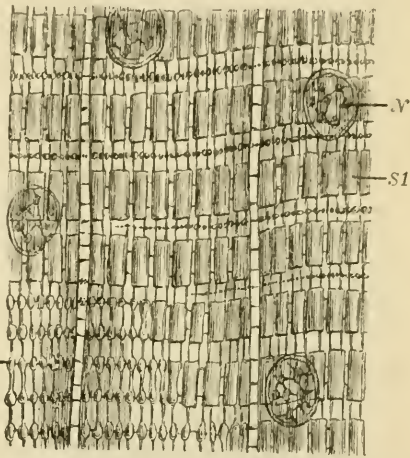 N
S1